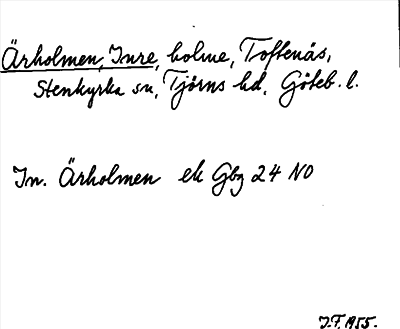 Ärholmen, Inre, holme, Toftenäs,
Stenkyrka sn, Tjörns hd, Göteb. l.
In. Ärholmen ek Gbg 24 NO
J.F. 1955.